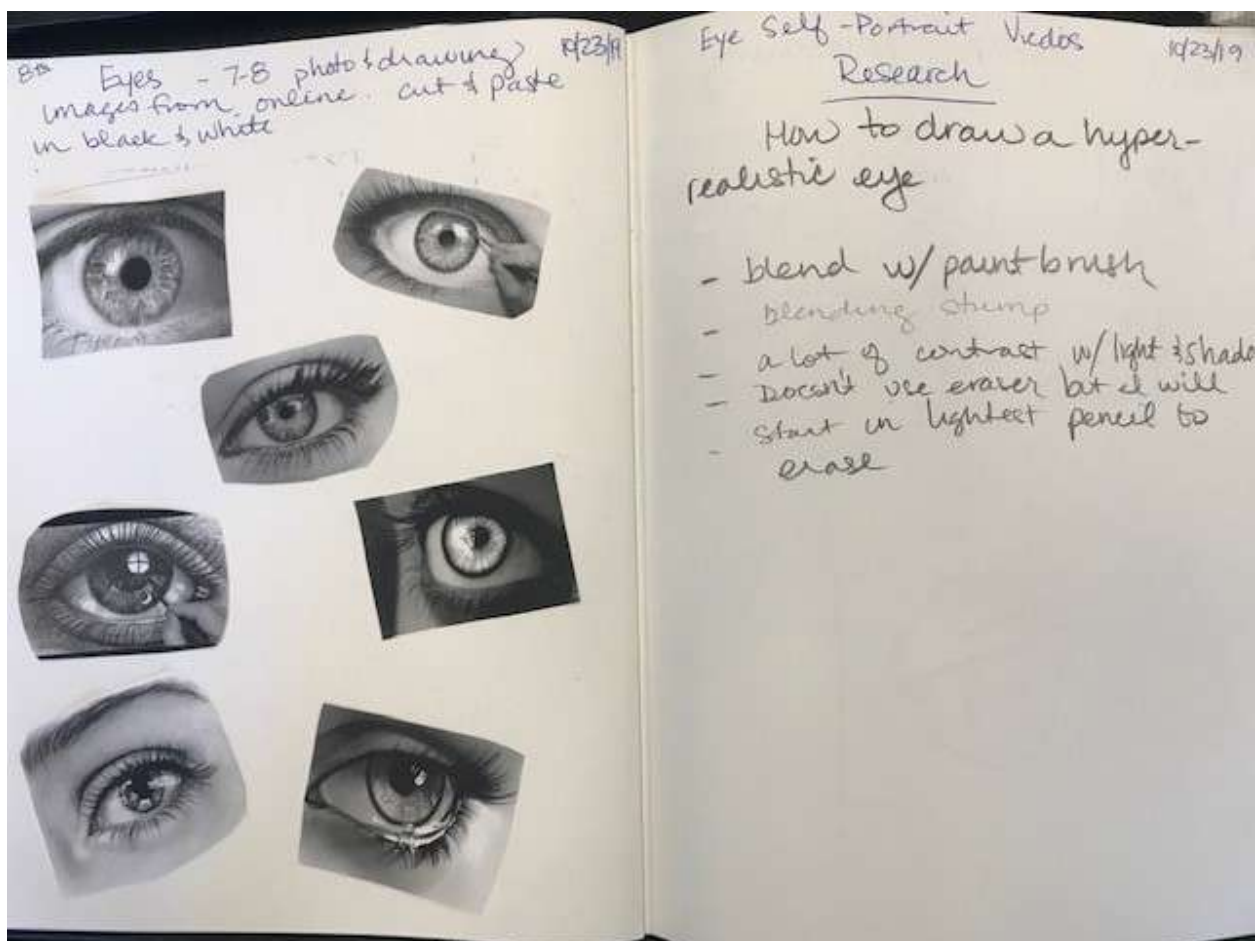 8th Eyes - 7-8 photo & drawing 10/23/19
images from online. cut & paste
in black & white
Eye Self-Portrait Viedos 10/23/19
Research
How to draw a hyper-
realistic eye
- blend w/ paintbrush
- blending stump
- a lot of contrast w/ light & shado
- Doesn't use eraser but I will
- start in lightest pencil to
erase